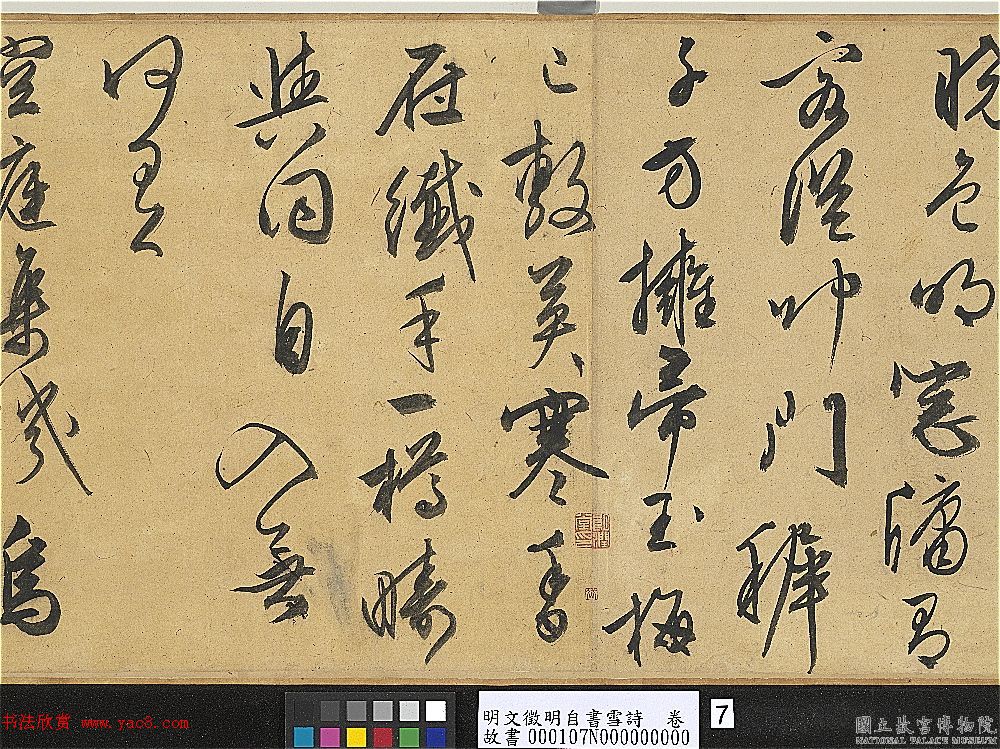 晚色明窗牖有
客從叩門穉
子方擁帚玉梅
已敷英寒香
在纖手一樽疇
與同自入無
何有
空庭集烏
书法欣赏 www.yac8.com
明文徵明自書雪詩 卷
故書 000107N000000000
7
國立故宮博物院
NATIONAL PALACE MUSEUM